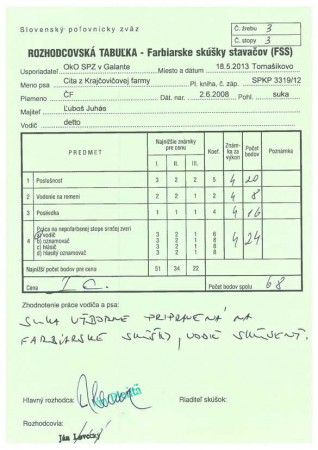 Slovenský poľovnícky zväz
Č. žrebu 3
Č. stopy 3
ROZHODCOVSKÁ TABUĽKA - Farbiarske skúšky stavačov (FSS)
Usporiadateľ OkO SPZ v Galante Miesto a dátum 18.5.2013 Tomašíkovo
Meno psa Cita z Krajčovičovej farmy Pl. kniha, č. záp. SPKP 3319/12
Plemeno ČF Dát. nar. 2.6.2008 Pohl. suka
Majiteľ Ľuboš Juhás
Vodič detto
PREDMET Najnižšie známky pre cenu I. II. III. Koef. Známka za výkon Počet bodov Poznámka
1 Poslušnosť 3 2 2 5 4 20
2 Vodenie na remeni 3 2 1 2 4 8
3 Posliedka 3 2 1 4 4 16
4 Práca na nepofarbenej stope srnčej zveri
a) vodič 3 2 1 6 4 24
b) oznamovač 3 2 1 8
c) hlásič 3 2 1 8
d) hlasitý oznamovač 3 2 1 8
Najnižší počet bodov pre cenu 51 34 22
Cena I c. Počet bodov spolu 68
Zhodnotenie práce vodiča a psa:
SUKA VÝBORNE PRIPRAVENÁ NA
FARBIARSKE SKÚŠKY, VODIČ SKÚSENÝ.
Hlavný rozhodca: Riaditeľ skúšok:
Rozhodcovia:
Ján Lovecký